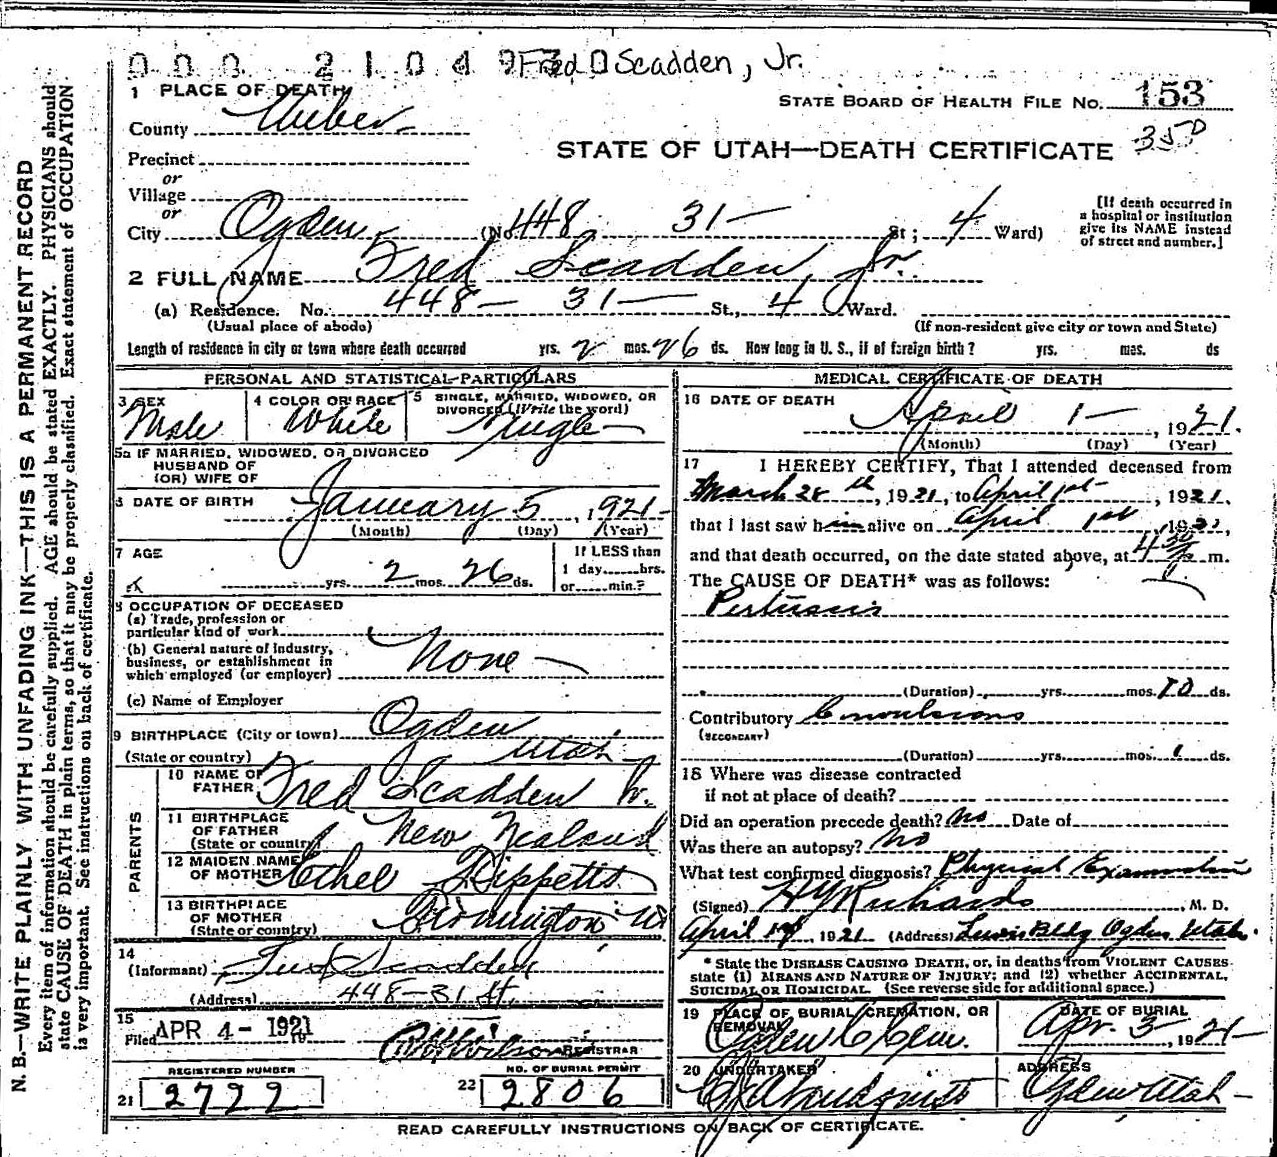 000 21049 Fred O Scadden, Jr.
1 PLACE OF DEATH
STATE BOARD OF HEALTH FILE NO. 153
County Weber
STATE OF UTAH—DEATH CERTIFICATE 35D
Precinct
or
Village
or
City Ogden (No. 448 31— St; 4 Ward)
[If death occurred in
a hospital or institution
give its NAME instead
of street and number.]
2 FULL NAME Fred Scadden, Jr.
(a) Residence. No. 448— 31— St., 4 Ward.
(Usual place of abode) (If non-resident give city or town and State)
Length of residence in city or town where death occurred yrs. 2 mos. 26 ds. How long in U. S., if of foreign birth? yrs. mos. ds
PERSONAL AND STATISTICAL PARTICULARS
3 SEX Male
4 COLOR OR RACE White
5 SINGLE, MARRIED, WIDOWED, OR
DIVORCED (Write the word)
Single
5a IF MARRIED, WIDOWED, OR DIVORCED
HUSBAND OF
(OR) WIFE OF
6 DATE OF BIRTH January 5, 1921
(Month) (Day) (Year)
7 AGE yrs. 2 mos. 26 ds.
If LESS than
1 day......hrs.
or......min.?
8 OCCUPATION OF DECEASED
(a) Trade, profession or
particular kind of work
(b) General nature of Industry,
business, or establishment in
which employed (or employer) None
(c) Name of Employer
9 BIRTHPLACE (City or town) Ogden
(State or country) Utah
PARENTS
10 NAME OF
FATHER Fred Scadden
11 BIRTHPLACE
OF FATHER
(State or country) New Zealand
12 MAIDEN NAME
OF MOTHER Ethel Tippetts
13 BIRTHPLACE
OF MOTHER
(State or country)
14
(Informant) Fred Scadden
(Address) 448—31 St.
15
Filed APR 4 - 1921 19
Wilson REGISTRAR
REGISTERED NUMBER
21 2799
NO. OF BURIAL PERMIT
22 2806
MEDICAL CERTIFICATE OF DEATH
16 DATE OF DEATH April 1—, 1921.
(Month) (Day) (Year)
17 I HEREBY CERTIFY, That I attended deceased from
March 28th, 1921, to April 1st, 1921,
that I last saw him alive on April 1st, 1921,
and that death occurred, on the date stated above, at 4 30 m.
The CAUSE OF DEATH* was as follows:
Pertussis
(Duration) yrs. mos. 10 ds.
Contributory Convulsions
(SECONDARY)
(Duration) yrs. mos. 1 ds.
18 Where was disease contracted
if not at place of death?
Did an operation precede death? No Date of
Was there an autopsy? No
What test confirmed diagnosis? Physical Examination
(Signed) Richards, M. D.
April 1921 (Address) Lewis Bldg Ogden Utah.
* State the DISEASE CAUSING DEATH, or, in deaths from VIOLENT CAUSES
state (1) MEANS AND NATURE OF INJURY; and (2) whether ACCIDENTAL,
SUICIDAL OR HOMICIDAL. (See reverse side for additional space.)
19 PLACE OF BURIAL, CREMATION, OR
REMOVAL
Ogden C Cem.
DATE OF BURIAL
Apr. 3—, 1921—
20 UNDERTAKER
Lindquist
ADDRESS
Ogden Utah—
READ CAREFULLY INSTRUCTIONS ON BACK OF CERTIFICATE.
N. B.—WRITE PLAINLY WITH UNFADING INK—THIS IS A PERMANENT RECORD
Every item of information should be carefully supplied. AGE should be stated EXACTLY. PHYSICIANS should
state CAUSE OF DEATH in plain terms, so that it may be properly classified. Exact statement of OCCUPATION
is very important. See instructions on back of certificate.